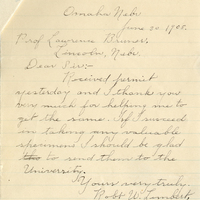 Omaha Nebr
June 20 1900.
Prof Lawrence Bruner.
Lincoln, Nebr.
Dear Sir:-
Received permit
yesterday and I thank you
very much for helping me to
get the same. If I succeed
in taking any valuable
specimens I should be glad
to send them to the
University.
Yours very truly.
Robt W. Lambert.